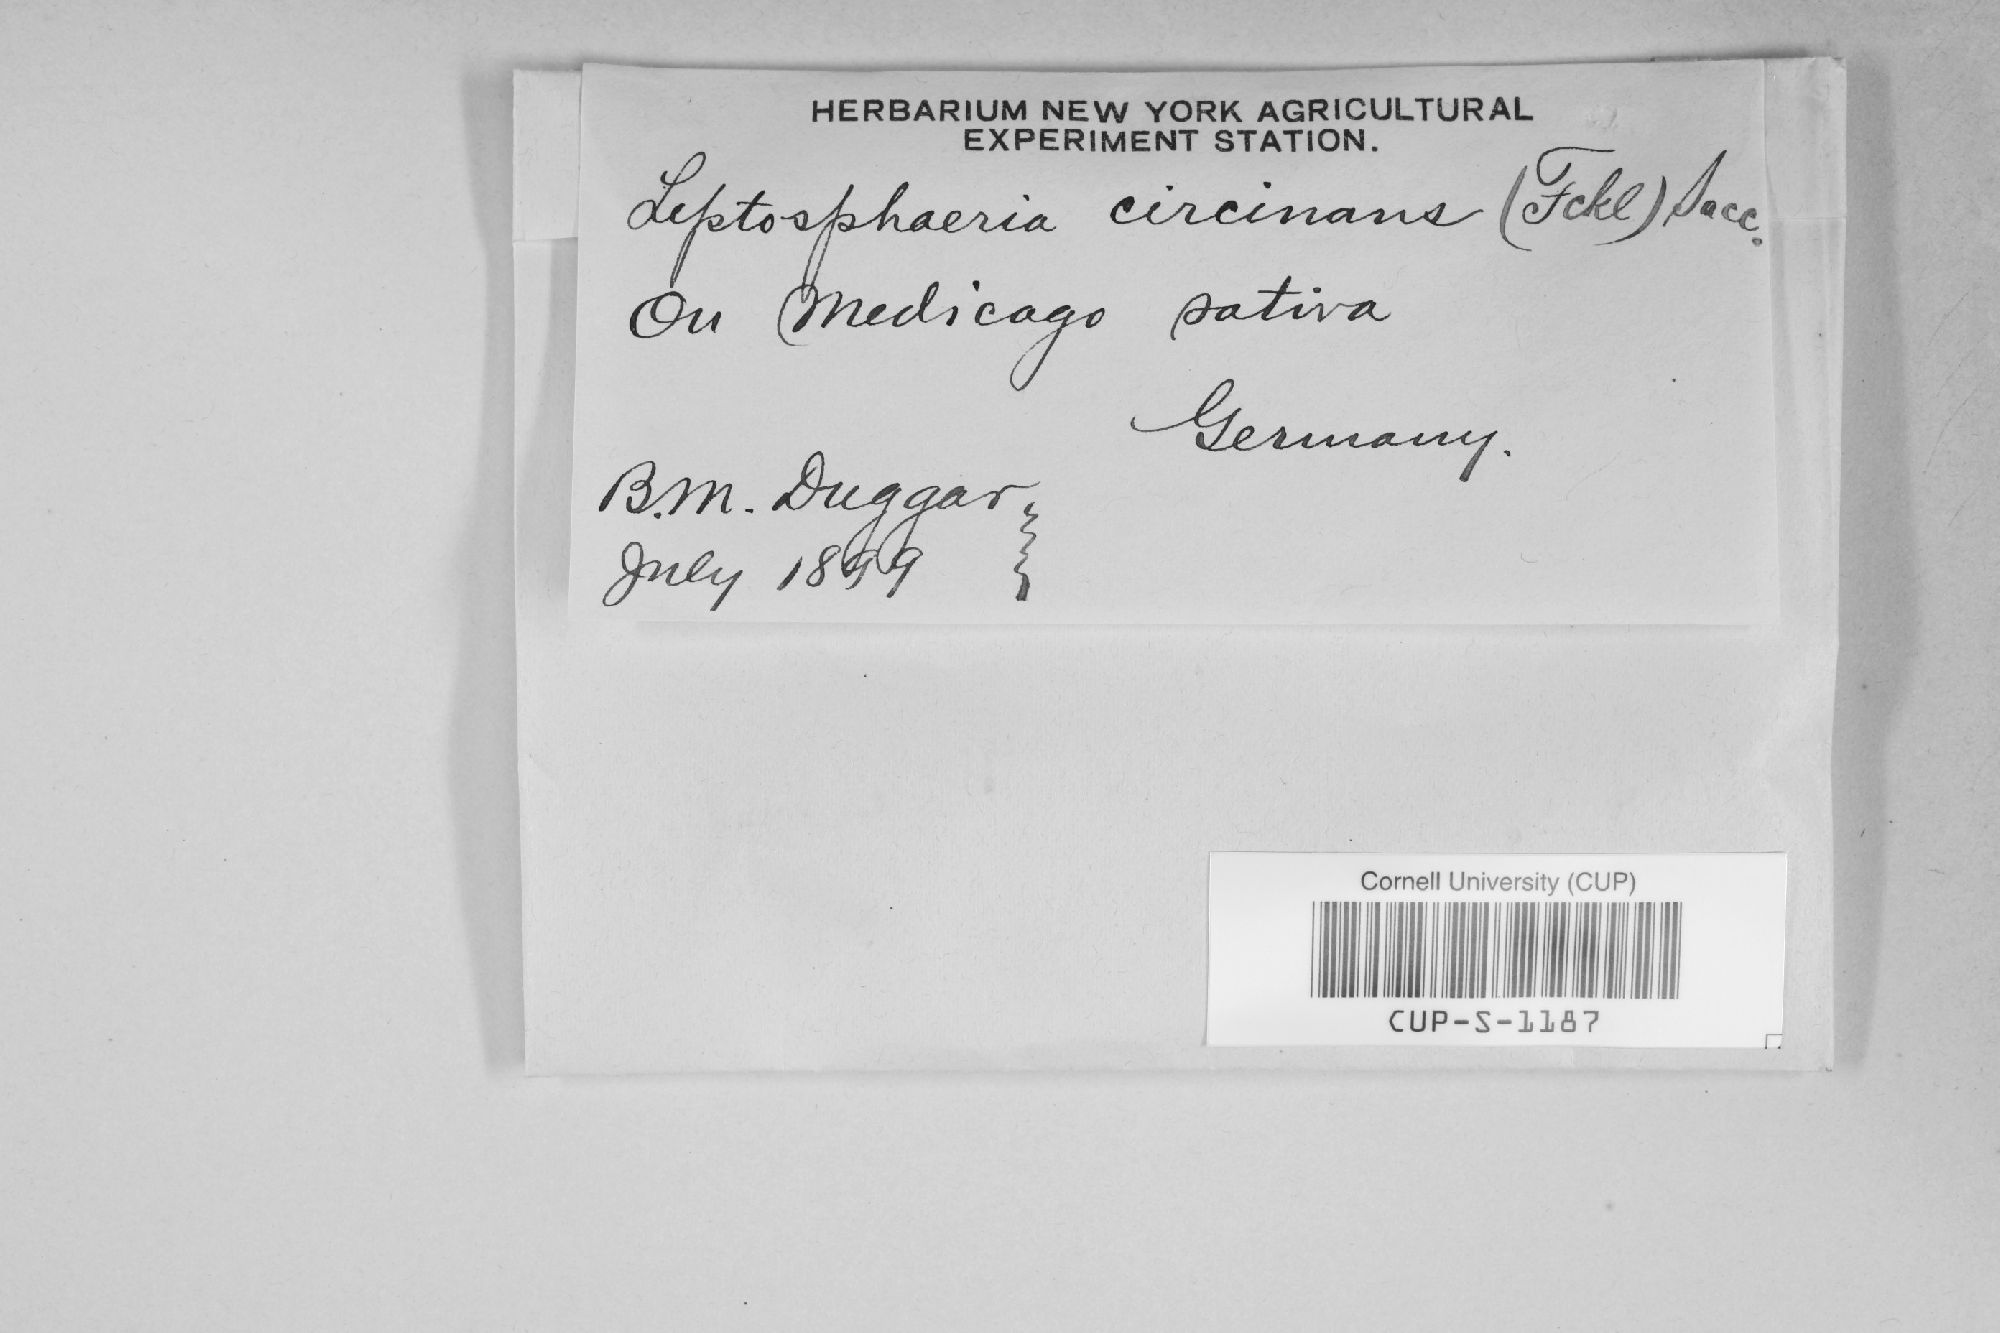 HERBARIUM NEW YORK AGRICULTURAL
EXPERIMENT STATION.
Leptosphaeria circinans (Fckl) Sacc.
On Medicago sativa
Germany.
B.M. Duggar
July 1899
Cornell University (CUP)
CUP-S-1187